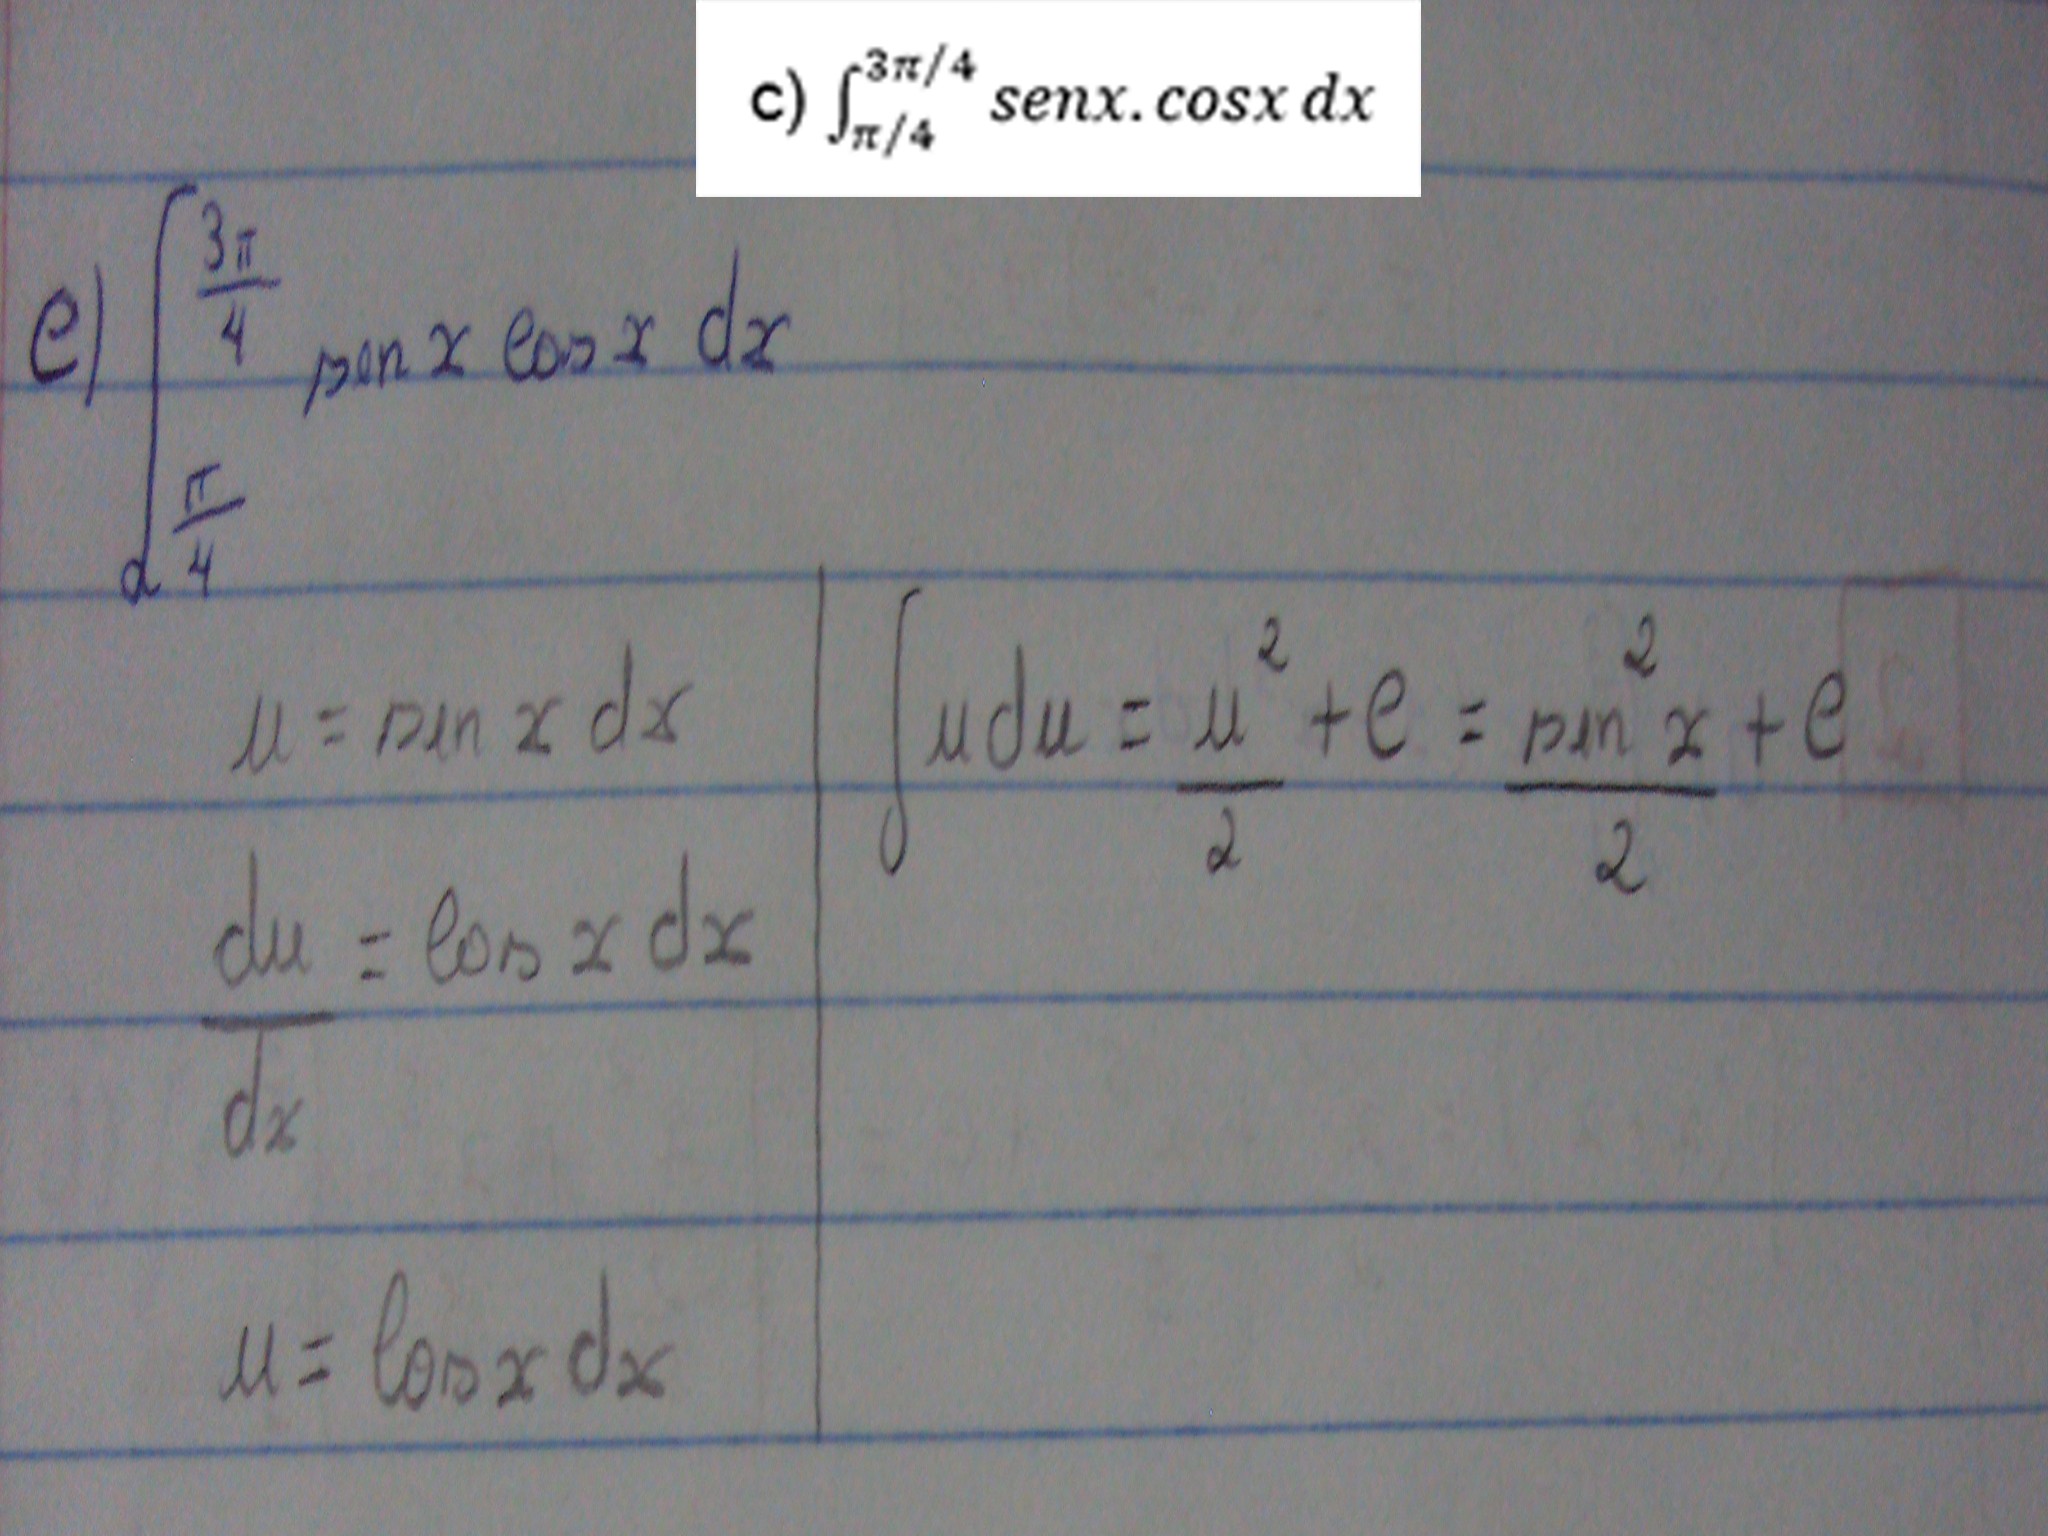 c) ∫_{π/4}^{3π/4} senx.cosx dx
c) ∫_{π/4}^{3π/4} sen x cos x dx
u = sen x dx
du/dx = cos x dx
u = cos x dx
∫ u du = u²/2 + c = sen² x/2 + c